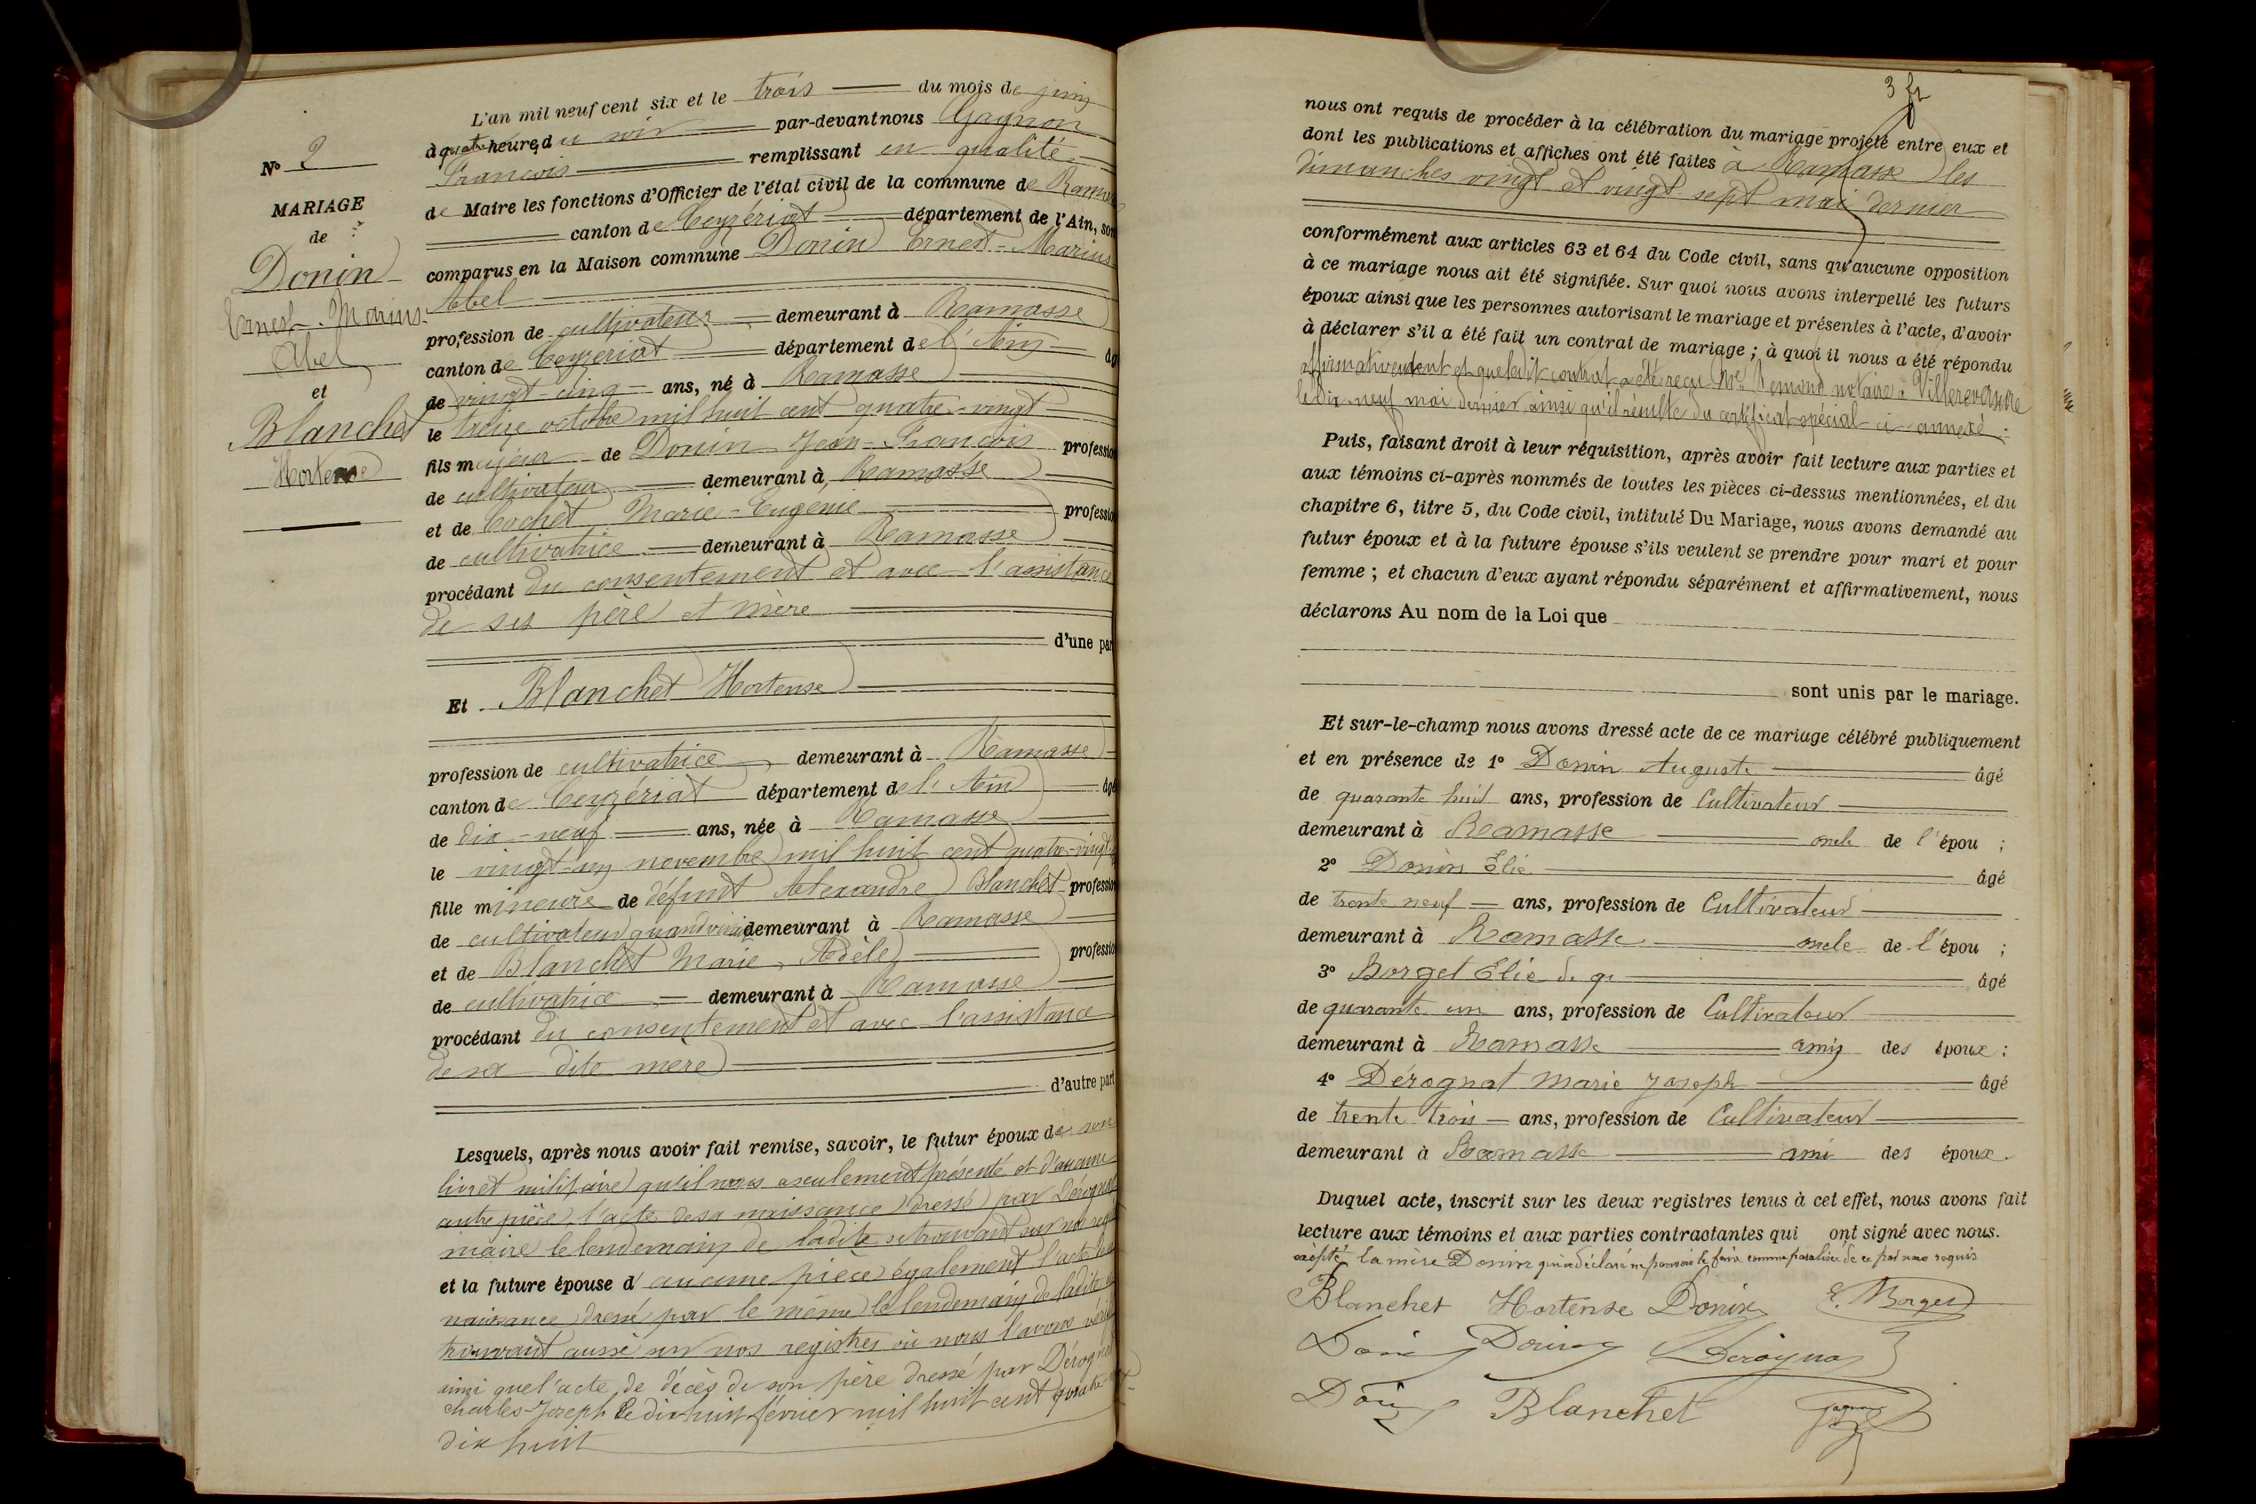 N° 2
MARIAGE
de
Donin
Ernest-Marius
Abel
et
Blanchet
Hortense
L'an mil neuf cent six et le trois du mois de juin
à quatre heures du soir par-devant nous Gagnon
François remplissant en qualité
de Maire les fonctions d'Officier de l'état civil de la commune de Ramasse
canton de Ceyzériat département de l'Ain, son
comparus en la Maison commune Donin Ernest-Marius
Abel
profession de cultivateur demeurant à Ramasse
canton de Ceyzériat département de l'Ain âg
de vingt-cinq ans, né à Ramasse
le treize octobre mil huit cent quatre-vingt
fils majeur de Donin Jean-François profession
de cultivateur demeurant à Ramasse
et de Cochet Marie-Eugénie profession
de cultivatrice demeurant à Ramasse
procédant du consentement et avec l'assistance
de ses père et mère
d'une part
Et Blanchet Hortense
profession de cultivatrice demeurant à Ramasse
canton de Ceyzériat département de l'Ain âgé
de dix-neuf ans, née à Ramasse
le vingt-un novembre mil huit cent quatre-vingt
fille mineure de défunt Alexandre Blanchet profession
de cultivateur quand vivait demeurant à Ramasse
et de Blanchet Marie Adèle profession
de cultivatrice demeurant à Ramasse
procédant du consentement et avec l'assistance
de sa dite mère
d'autre part
Lesquels, après nous avoir fait remise, savoir, le futur époux de son
livret militaire qu'il nous a seulement présenté et d'aucune
autre pièce, l'acte de sa naissance dressé par Dérognat
maire le lendemain de ladite se trouvant sur nos reg
et la future épouse d'aucune pièce également l'acte de
naissance dressé par le même le lendemain de ladite se
trouvant aussi sur nos registres où nous l'avons véri
ainsi que l'acte de décès de son père dressé par Dérognat
Charles-Joseph le dix-huit février mil huit cent quatre
dix huit
3 fr
nous ont requis de procéder à la célébration du mariage projeté entre eux et
dont les publications et affiches ont été faites à Ramasse les
dimanches vingt et vingt sept mai dernier
conformément aux articles 63 et 64 du Code civil, sans qu'aucune opposition
à ce mariage nous ait été signifiée. Sur quoi nous avons interpellé les futurs
époux ainsi que les personnes autorisant le mariage et présentes à l'acte, d'avoir
à déclarer s'il a été fait un contrat de mariage ; à quoi il nous a été répondu
affirmativement et que ledit contrat a été reçu Me notaire à Villereversure
le dix-neuf mai dernier ainsi qu'il résulte du certificat spécial ci-annexé.
Puis, faisant droit à leur réquisition, après avoir fait lecture aux parties et
aux témoins ci-après nommés de toutes les pièces ci-dessus mentionnées, et du
chapitre 6, titre 5, du Code civil, intitulé Du Mariage, nous avons demandé au
futur époux et à la future épouse s'ils veulent se prendre pour mari et pour
femme ; et chacun d'eux ayant répondu séparément et affirmativement, nous
déclarons Au nom de la Loi que
sont unis par le mariage.
Et sur-le-champ nous avons dressé acte de ce mariage célébré publiquement
et en présence de 1° Donin Auguste âgé
de quarante huit ans, profession de Cultivateur
demeurant à Ramasse oncle de l'épou ;
2° Donin Élie âgé
de trente neuf ans, profession de Cultivateur
demeurant à Ramasse oncle de l'épou ;
3° Borget Élie âgé
de quarante un ans, profession de Cultivateur
demeurant à Ramasse ami des époux ;
4° Dérognat Marie Joseph âgé
de trente trois ans, profession de Cultivateur
demeurant à Ramasse ami des époux.
Duquel acte, inscrit sur les deux registres tenus à cet effet, nous avons fait
lecture aux témoins et aux parties contractantes qui ont signé avec nous.
excepté la mère Donin qui a déclaré ne pouvoir le faire comme paralisée de ce par nous requis
Blanchet Hortense Donin E. Borget
Donin Donin Dérognat
Donin Blanchet Gagnon